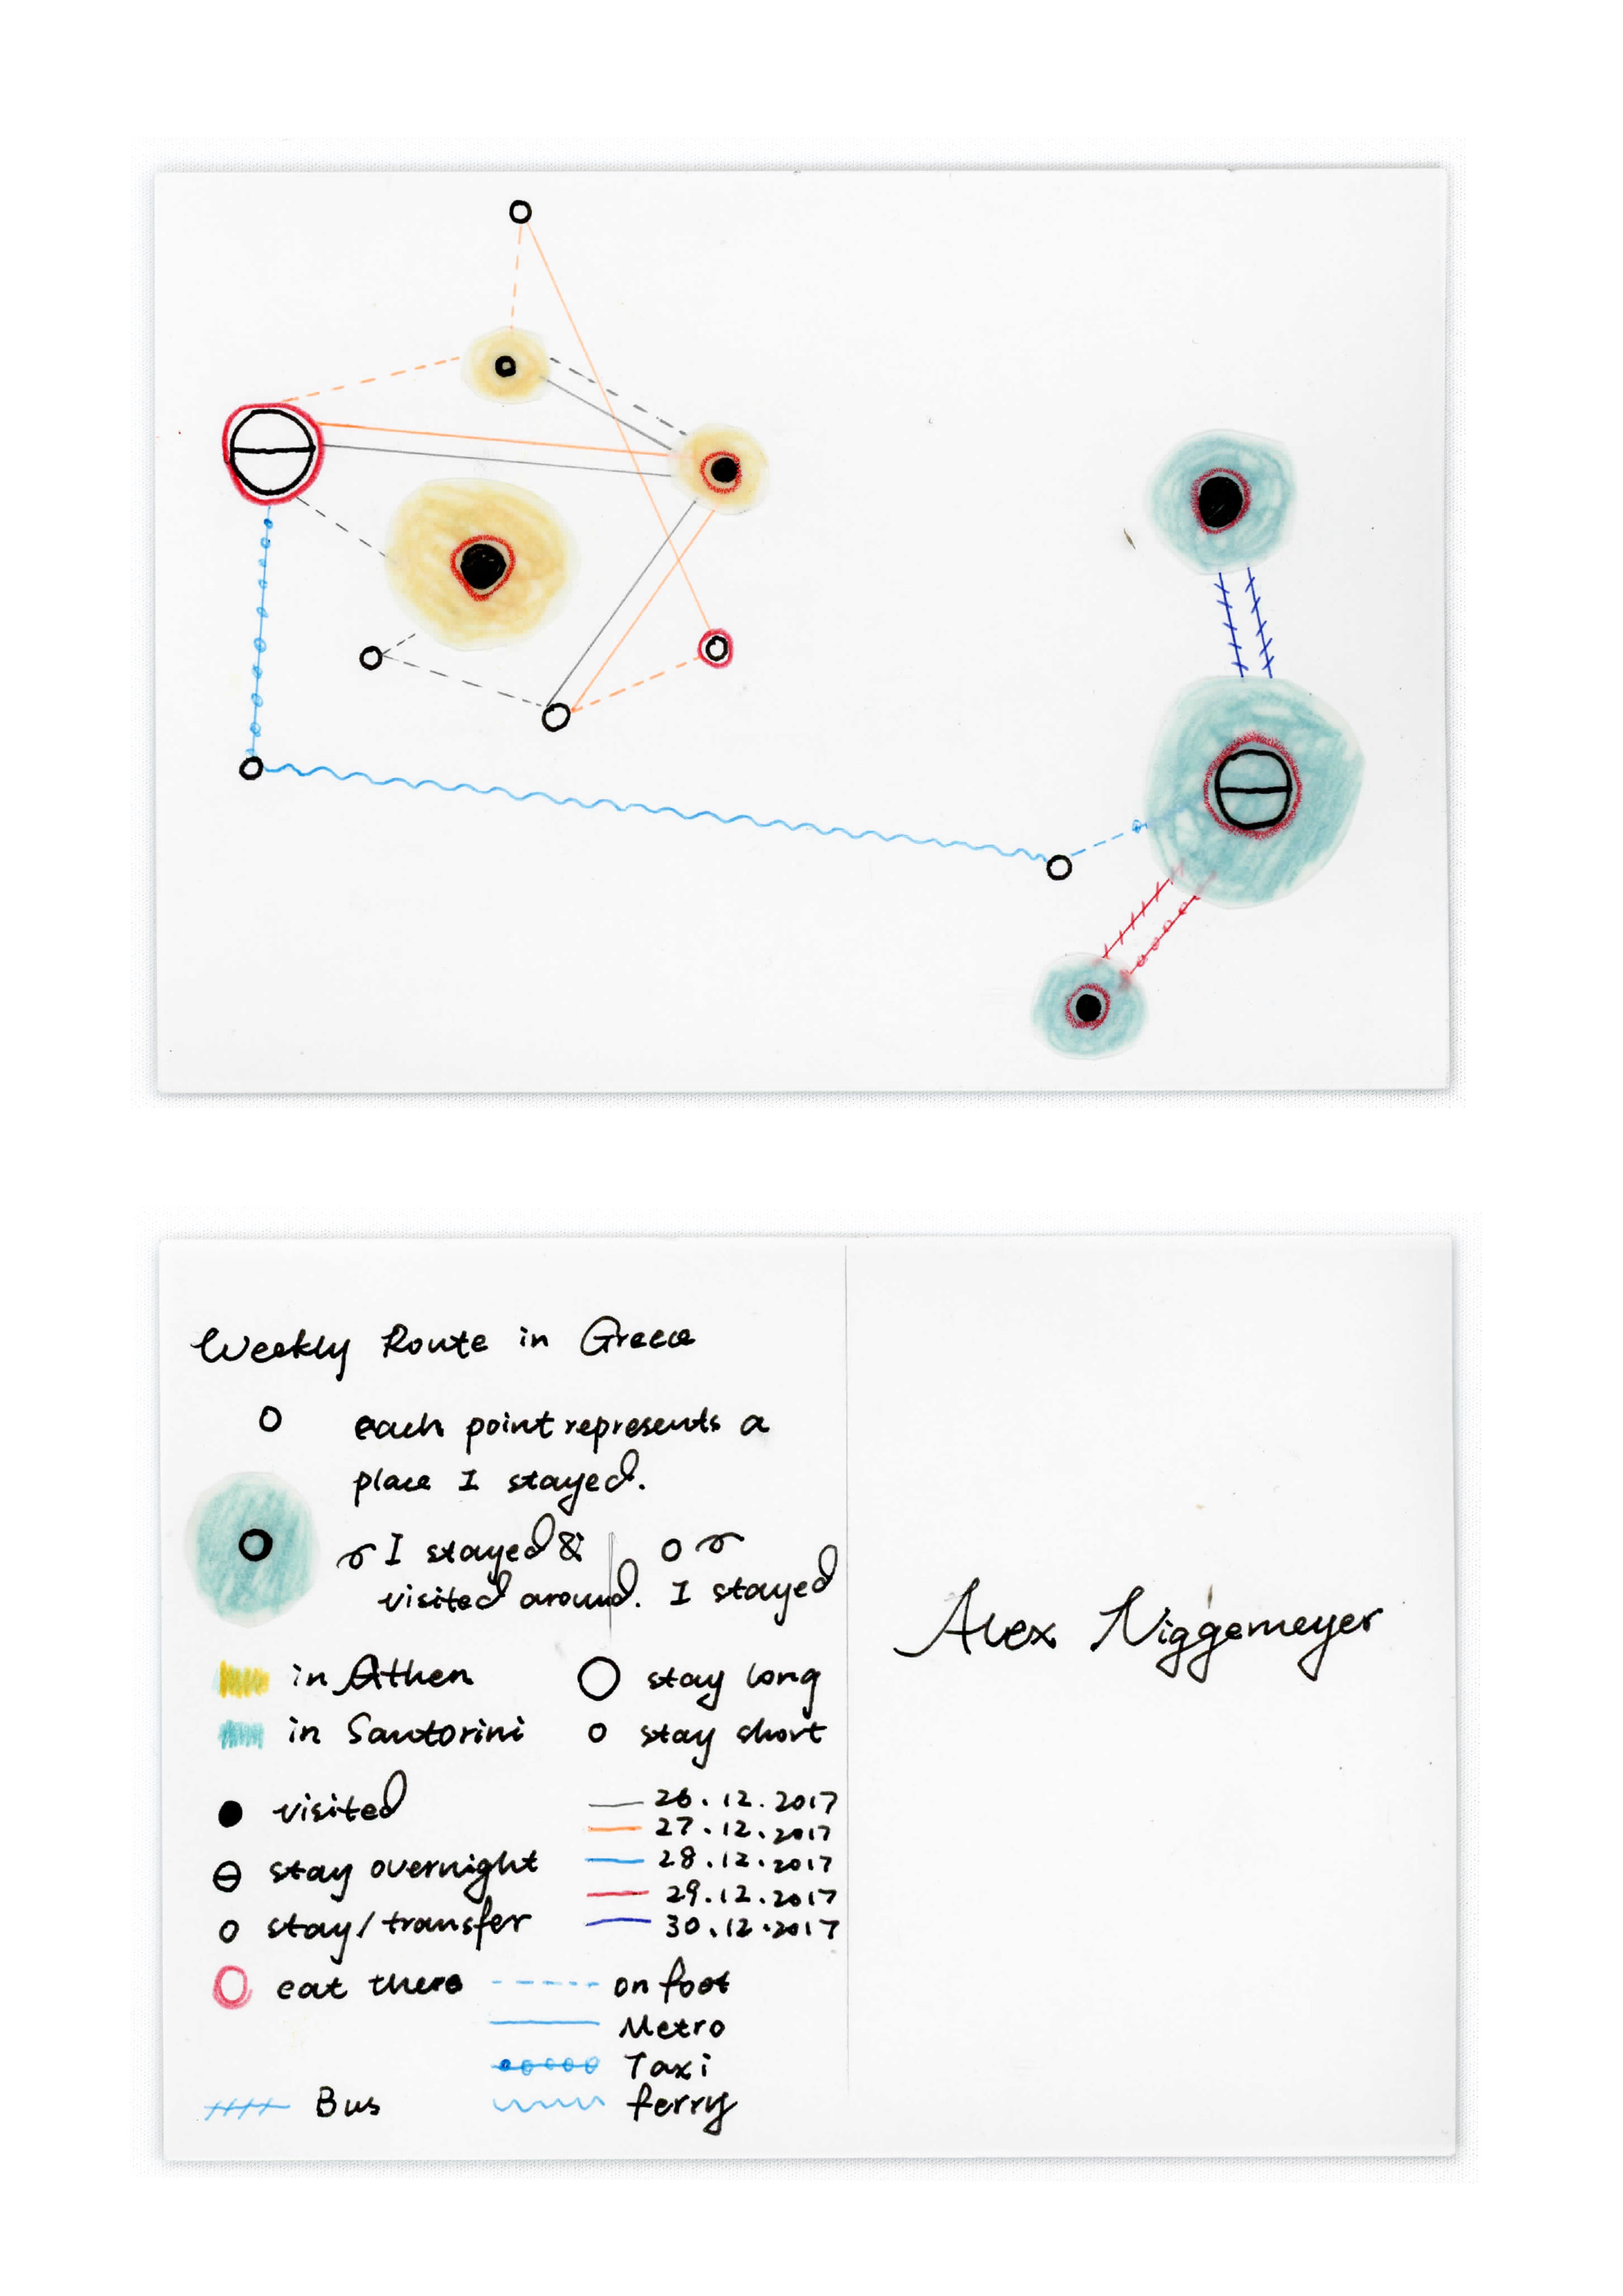 Weekly Route in Greece
each point represents a
place I stayed.
I stayed &
visited around.
I stayed
in Athen
in Santorini
stay long
stay short
visited
stay overnight
stay/transfer
eat there
26.12.2017
27.12.2017
28.12.2017
29.12.2017
30.12.2017
on foot
Metro
Taxi
Bus
ferry
Alex Niggemeyer